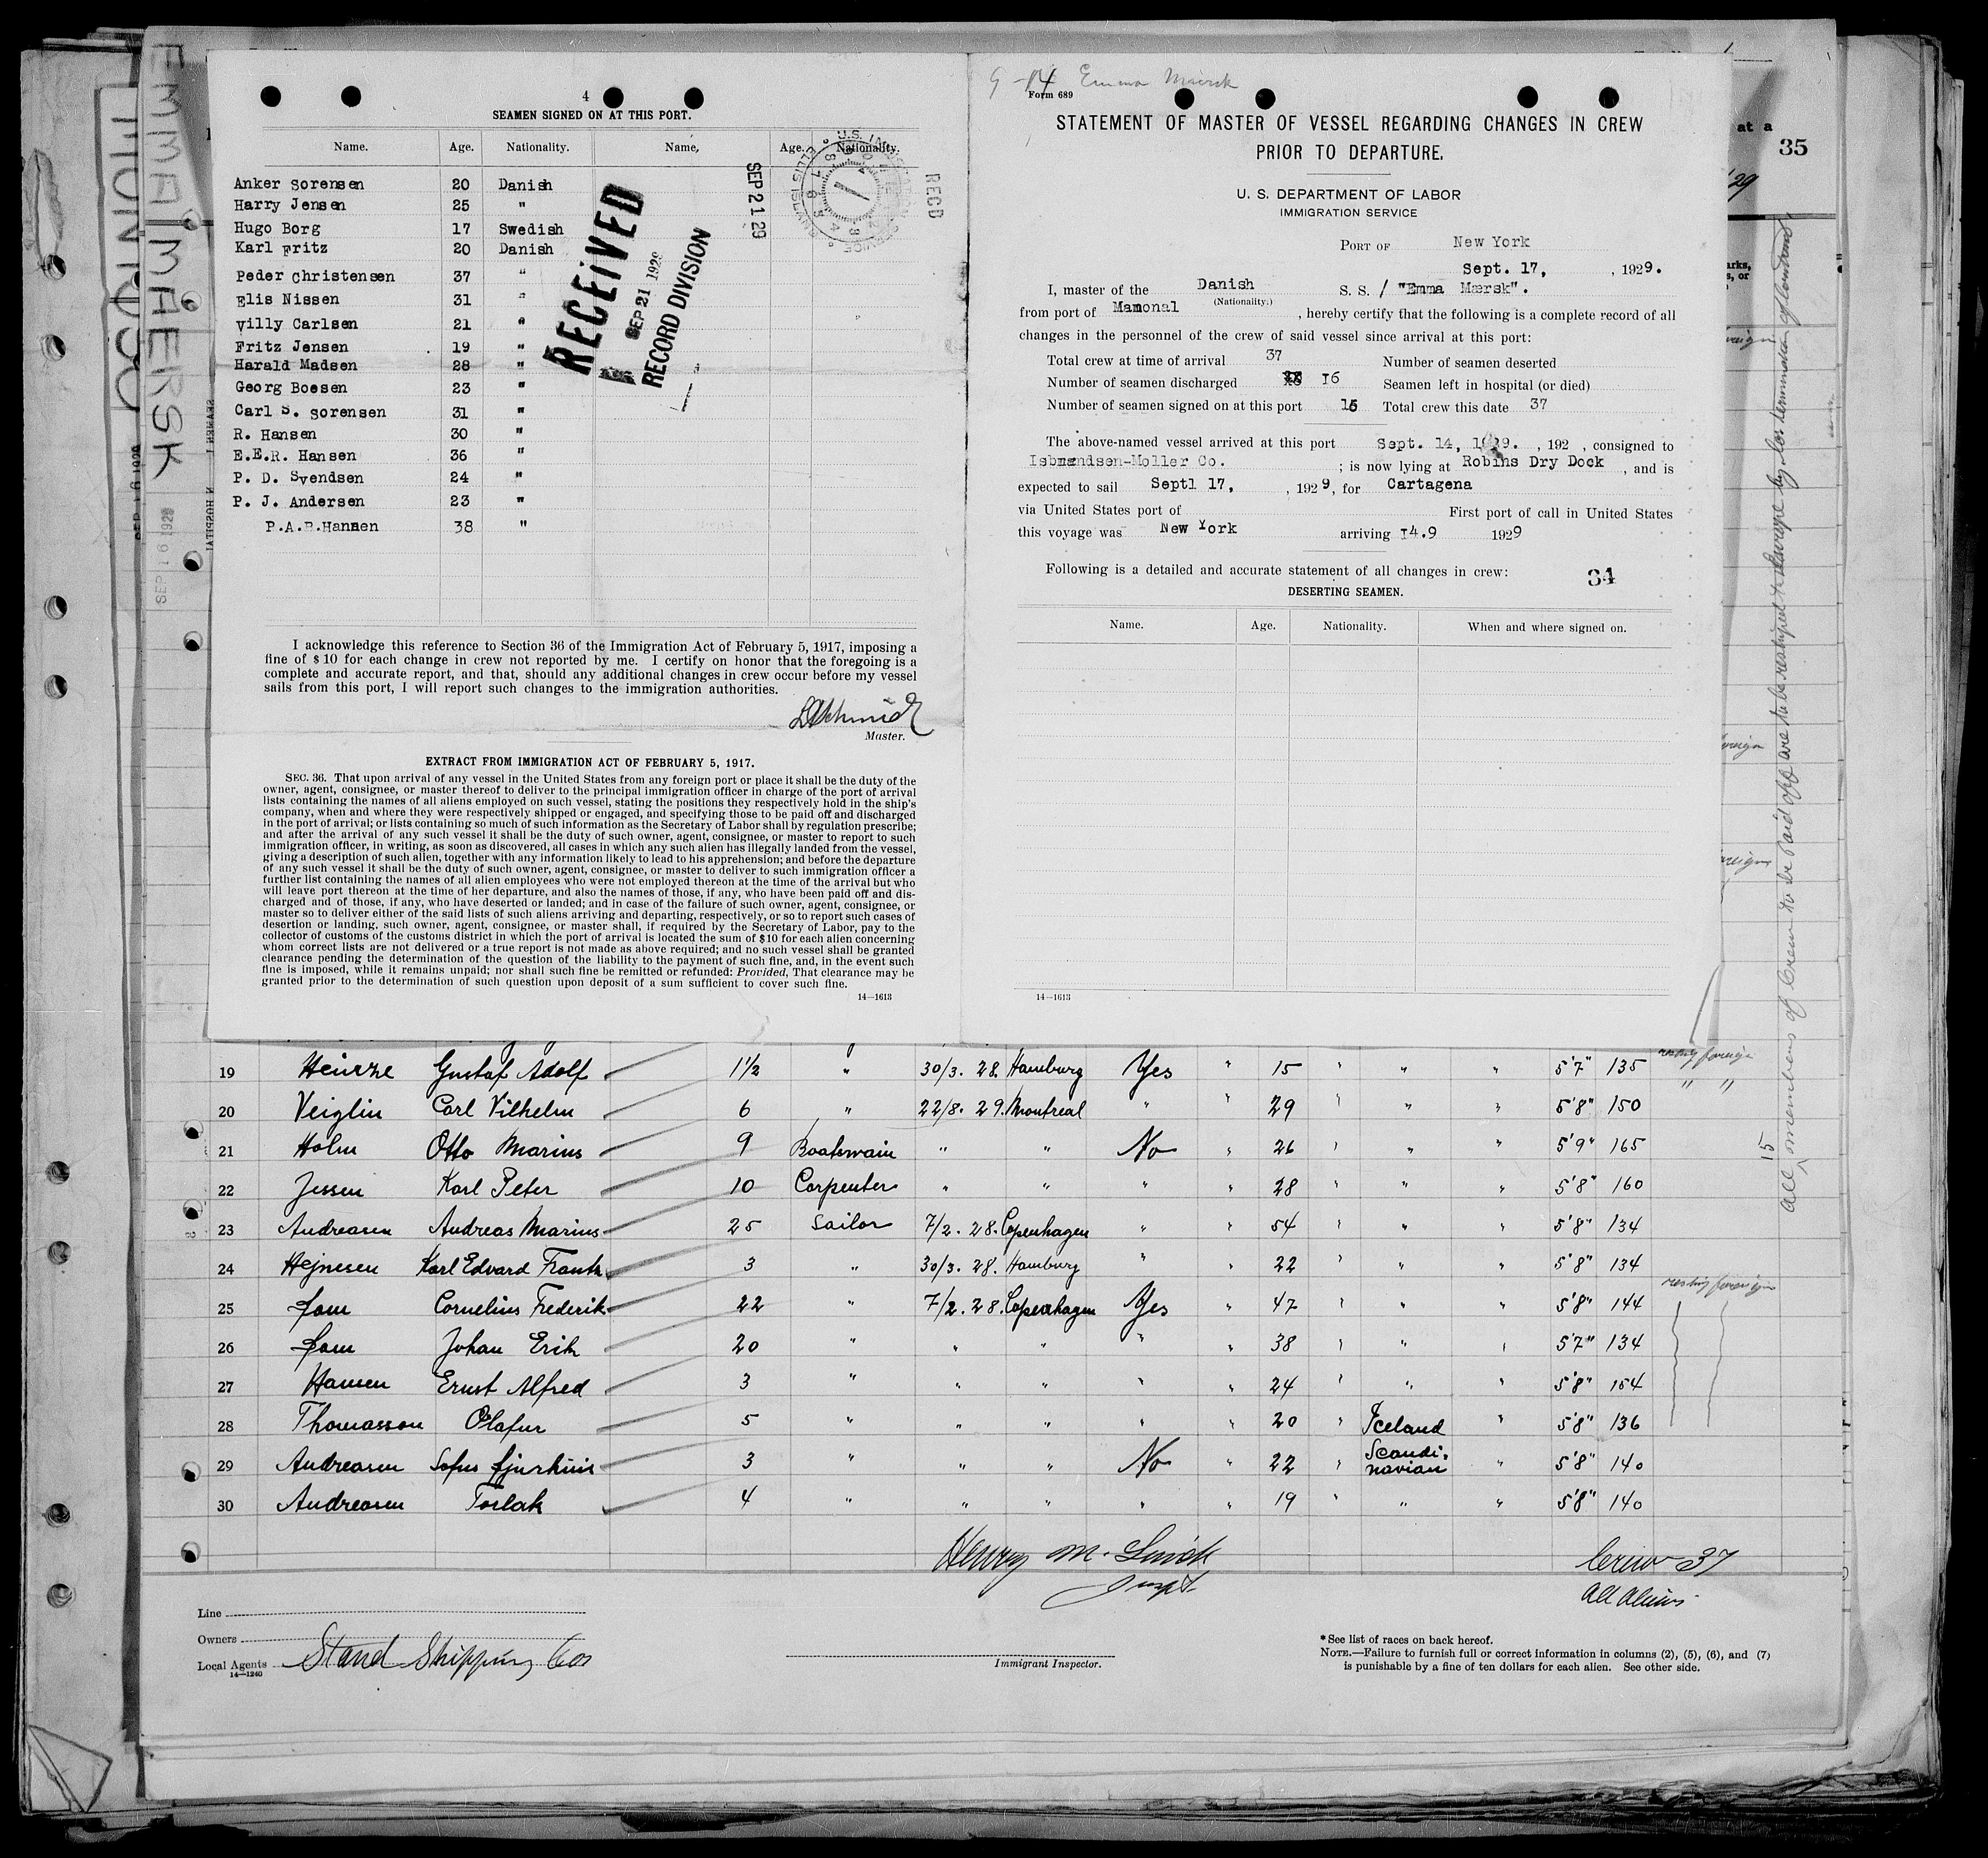 4
SEAMEN SIGNED ON AT THIS PORT.
Name. Age. Nationality. Name, Age. Nationality.
Anker Sorensen 20 Danish
Harry Jensen 25 "
Hugo Borg 17 Swedish
Karl Fritz 20 Danish
Peder Christensen 37 "
Elis Nissen 31 "
Villy Carlsen 21 "
Fritz Jensen 19 "
Harald Madsen 28 "
Georg Boesen 23 "
Carl S. Sorensen 31 "
R. Hansen 30 "
E.E.R. Hansen 36 "
P. D. Svendsen 24 "
P. J. Andersen 23 "
P.A.B.Hansen 38 "
RECEIVED
SEP 21 1929
RECORD DIVISION
SEP 21 29
REC'D
I acknowledge this reference to Section 36 of the Immigration Act of February 5, 1917, imposing a
fine of $10 for each change in crew not reported by me. I certify on honor that the foregoing is a
complete and accurate report, and that, should any additional changes in crew occur before my vessel
sails from this port, I will report such changes to the immigration authorities.
Master.
EXTRACT FROM IMMIGRATION ACT OF FEBRUARY 5, 1917.
SEC. 36. That upon arrival of any vessel in the United States from any foreign port or place it shall be the duty of the
owner, agent, consignee, or master thereof to deliver to the principal immigration officer in charge of the port of arrival
lists containing the names of all aliens employed on such vessel, stating the positions they respectively hold in the ship's
company, when and where they were respectively shipped or engaged, and specifying those to be paid off and discharged
in the port of arrival; or lists containing so much of such information as the Secretary of Labor shall by regulation prescribe;
and after the arrival of any such vessel it shall be the duty of such owner, agent, consignee, or master to report to such
immigration officer, in writing, as soon as discovered, all cases in which any such alien has illegally landed from the vessel,
giving a description of such alien, together with any information likely to lead to his apprehension; and before the departure
of any such vessel it shall be the duty of such owner, agent, consignee, or master to deliver to such immigration officer a
further list containing the names of all alien employees who were not employed thereon at the time of the arrival but who
will leave port thereon at the time of her departure, and also the names of those, if any, who have been paid off and dis-
charged and of those, if any, who have deserted or landed; and in case of the failure of such owner, agent, consignee, or
master so to deliver either of the said lists of such aliens arriving and departing, respectively, or so to report such cases of
desertion or landing, such owner, agent, consignee, or master shall, if required by the Secretary of Labor, pay to the
collector of customs of the customs district in which the port of arrival is located the sum of $10 for each alien concerning
whom correct lists are not delivered or a true report is not made as above required; and no such vessel shall be granted
clearance pending the determination of the question of the liability to the payment of such fine, and, in the event such
fine is imposed, while it remains unpaid; nor shall such fine be remitted or refunded: Provided, That clearance may be
granted prior to the determination of such question upon deposit of a sum sufficient to cover such fine.
14—1613
9-14 Emma Maersk
Form 689
STATEMENT OF MASTER OF VESSEL REGARDING CHANGES IN CREW
PRIOR TO DEPARTURE.
U. S. DEPARTMENT OF LABOR
IMMIGRATION SERVICE
PORT OF New York
Sept. 17, , 1929.
I, master of the Danish S. S. / "Emma Mærsk".
(Nationality.)
from port of Mamonal , hereby certify that the following is a complete record of all
changes in the personnel of the crew of said vessel since arrival at this port:
Total crew at time of arrival 37 Number of seamen deserted
Number of seamen discharged 16 Seamen left in hospital (or died)
Number of seamen signed on at this port 16 Total crew this date 37
The above-named vessel arrived at this port Sept. 14, 1929. , 192 , consigned to
Isbrandsen-Moller Co. ; is now lying at Robins Dry Dock , and is
expected to sail Septl 17, , 1929, for Cartagena
via United States port of First port of call in United States
this voyage was New York arriving 14.9 1929
Following is a detailed and accurate statement of all changes in crew: 34
DESERTING SEAMEN.
Name. Age. Nationality. When and where signed on.
14—1613
at a
35
EMMA MAERSK
SEP 16 1929
All 15 members of crew to be paid off are to be reshipped to Europe by
19 Heinzne Gustaf Adolf 1½ " 30/3. 28. Hamburg Yes " 15 " " " 5'7" 135
20 Veiglin Carl Vilhelm 6 " 22/8. 29. Montreal " " 29 " " " 5'8" 150
21 Holm Otto Marius 9 Boatswain " " No " 26 " " " 5'9" 165
22 Jessen Karl Peter 10 Carpenter " " " " 28 " " " 5'8" 160
23 Andreasen Andreas Marius 25 Sailor 7/2. 28. Copenhagen " " 54 " " " 5'8" 134
24 Hejnesen Karl Edvard Frank 3 " 30/3. 28. Hamburg " " 22 " " " 5'8" 134
25 Cornelius Frederik 22 " 7/2. 28. Copenhagen Yes " 47 " " " 5'8" 144
26 Johan Erik 20 " " " " " 38 " " " 5'7" 134
27 Hansen Ernst Alfred 3 " " " " " 24 " " " 5'8" 154
28 Thomasson Olafur 5 " " " " " 20 " Iceland " 5'8" 136
29 Andreasen Sofus 3 " " " No " 22 " Scandinavian " 5'8" 140
30 Andreasen Torlak 4 " " " " " 19 " " " 5'8" 140
Henry M.
Inspt.
Crew 37
All Aliens
Line
Owners
Local Agents Stand Shipping Co
14—1240
Immigrant Inspector.
* See list of races on back hereof.
NOTE.—Failure to furnish full or correct information in columns (2), (5), (6), and (7)
is punishable by a fine of ten dollars for each alien. See other side.